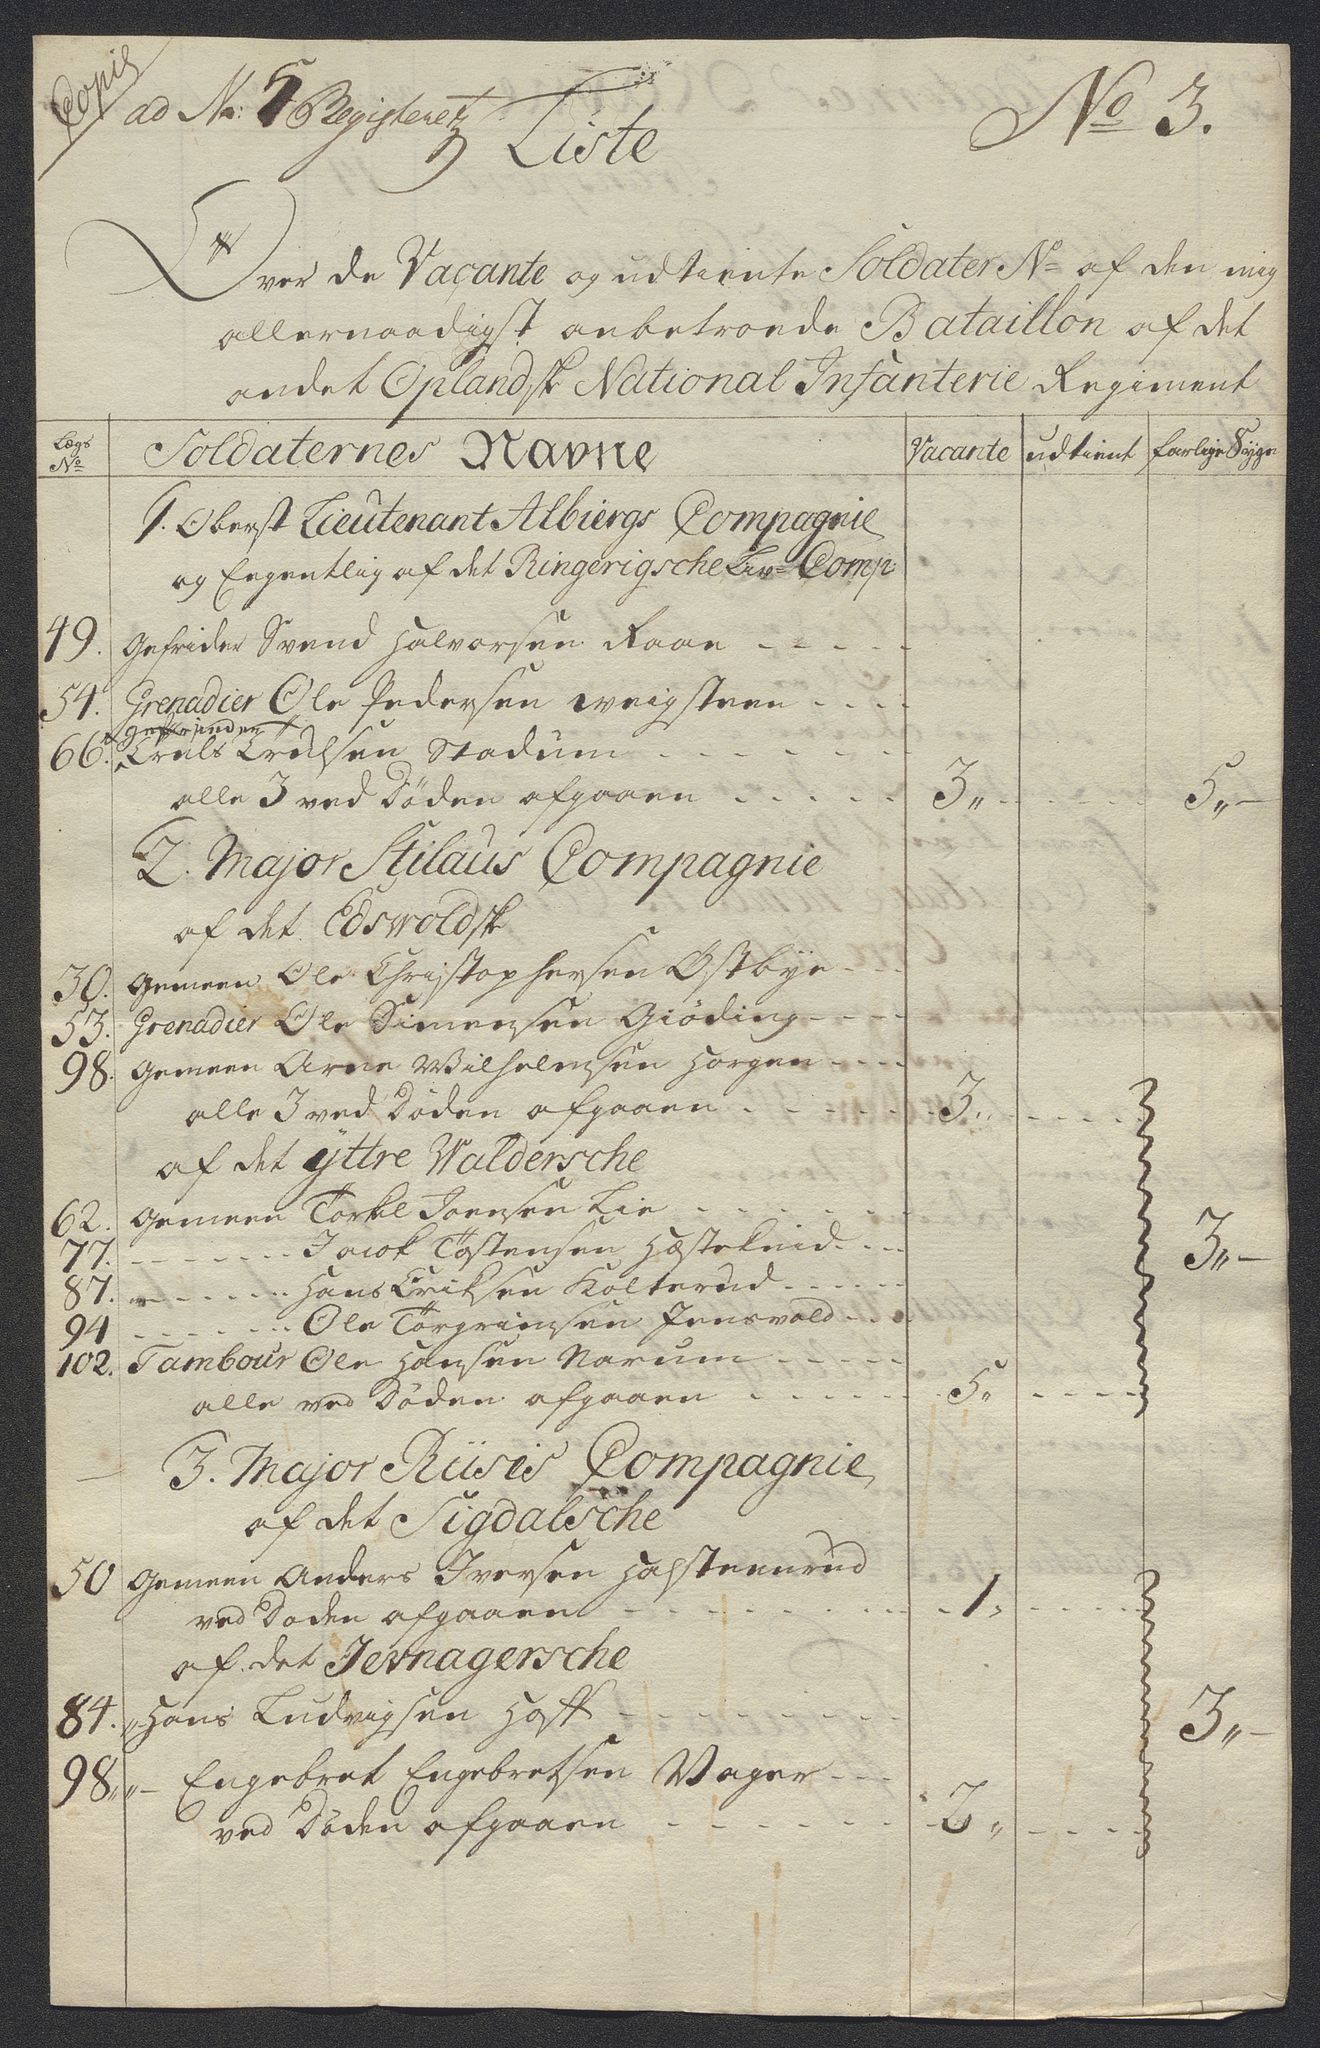 Copie
ad No: 5 Registeret
Liste
No 3.
Over de Vacante og udtiente Soldater No af den mig
allernaadigst anbetroede Bataillon af det
andet Oplandsk National Infanterie Regiment
Lægs No Soldaternes Navne Vacante udtient farlige Syge
1. Oberst Lieutenant Albiergs Compagnie
og Eegentlig af det Ringerigsche Liv Comp:
49. Gefrider Svend Halvorsen Raae
54. Grenadier Ole Pedersen Weigsteen
66. Truls Trulsen Stadum
alle 3 ved Døden afgaaen 3 5
2. Major Stilaus Compagnie
af det Edswoldsk
30. Gemeen Ole Christophersen Østbye
53. Grenadier Ole Simensen Giøding
98. Gemeen Arne Wilhelmsen Horgen
alle 3 ved Døden afgaaen 3
af det ÿttre Waldersche
62. Gemeen Torkel Joensen Lie
77. Jacob Tostensen Hæstekind
3
87. Hans Eriksen Kolterud
94 Ole Torgrimsen Jensvold
102. Tambour Ole Hansen Narum
alle ved Døden afgaaen 5
3. Major Riisis Compagnie
af det Sigdalsche
50 Gemeen Anders Iversen Halsteenrud
ved Døden afgaaen 1
af det Jevnagersche
84. Hans Ludvigsen Hoff
3
98 Engebret Engebretsen Vager
ved Døden afgaaen 2